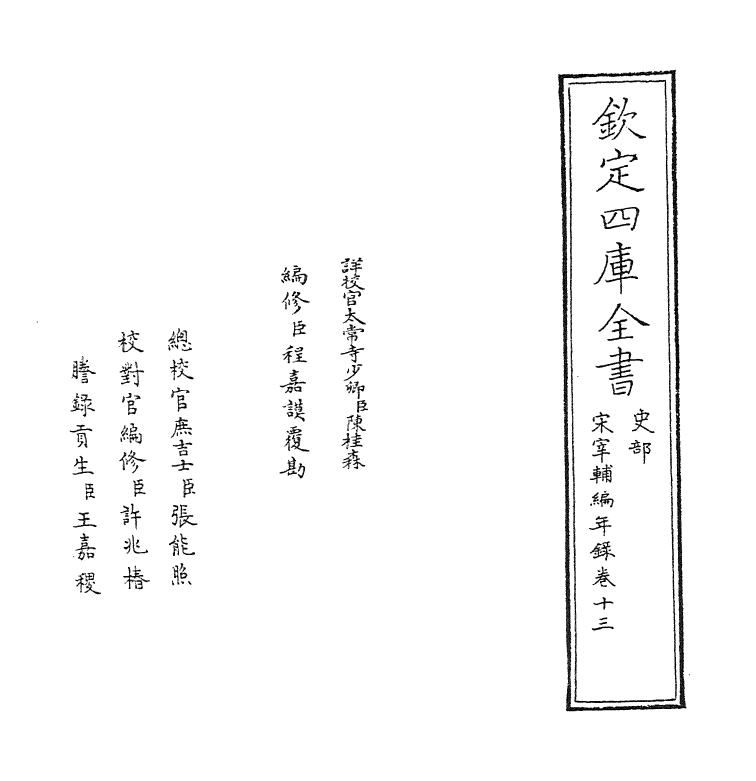 欽定四庫全書
史部
宋宰輔編年錄卷十三
詳校官太常寺少卿臣陳桂森
編修臣程嘉謨覆勘
總校官庶吉士臣張能照
校對官編修臣許兆椿
謄錄貢生臣王嘉稷